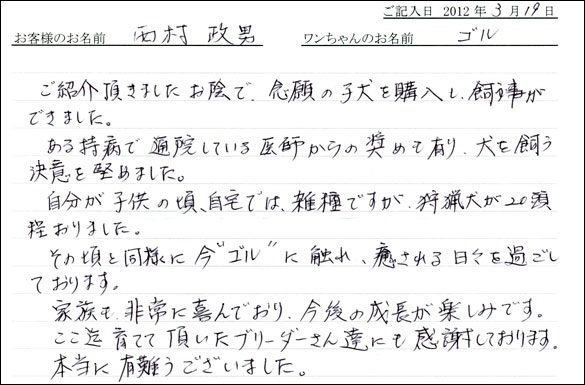 ご記入日 2012年3月19日
お客様のお名前 西村 政男 ワンちゃんのお名前 ゴル
ご紹介頂きましたお陰で、念願の子犬を購入し、飼う事が
できました。
ある持病で通院している医師からの奨めも有り、犬を飼う
決意を堅めました。
自分が子供の頃、自宅では、雑種ですが、狩猟犬が20頭
程おりました。
その頃と同様に今"ゴル"に触れ、癒される日々を過ごし
ております。
家族も、非常に喜んでおり、今後の成長が楽しみです。
ここ迄育てて頂いたブリーダーさん達にも感謝しております。
本当に有難うございました。